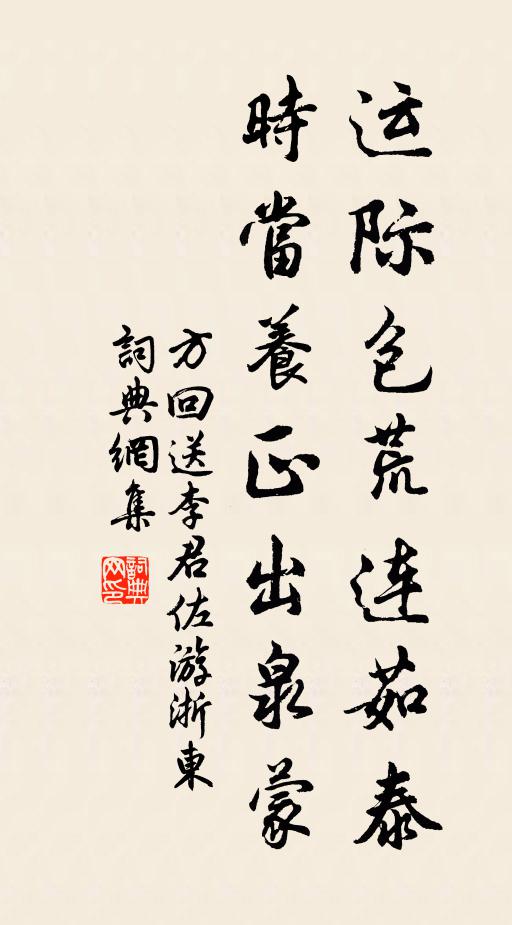 运际包荒連茹泰
時當養正出泉蒙
方回送李君佐游浙東
詞典網集
詞典网印